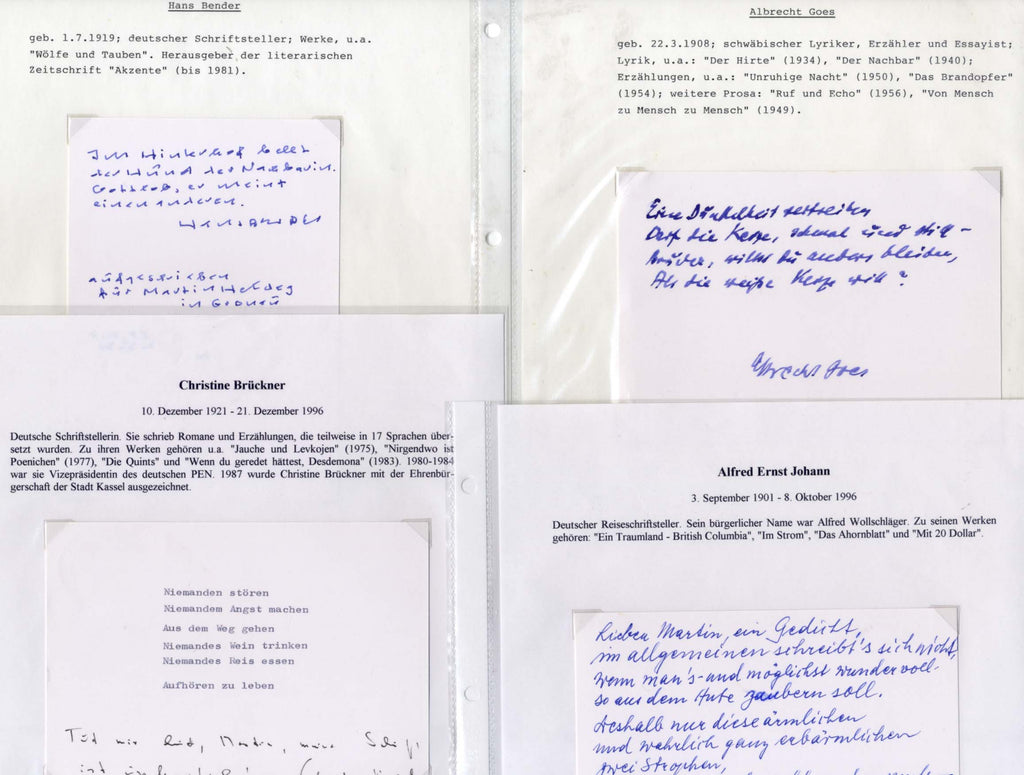 Hans Bender
geb. 1.7.1919; deutscher Schriftsteller; Werke, u.a.
"Wölfe und Tauben". Herausgeber der literarischen
Zeitschrift "Akzente" (bis 1981).
Im Hinterhof bellt
der Hund der Nachbarin.
Gottlob, er meint
einen anderen.
Hans Bender
aufgeschrieben
für Martin
in Gronau
Albrecht Goes
geb. 22.3.1908; schwäbischer Lyriker, Erzähler und Essayist;
Lyrik, u.a.: "Der Hirte" (1934), "Der Nachbar" (1940);
Erzählungen, u.a.: "Unruhige Nacht" (1950), "Das Brandopfer"
(1954); weitere Prosa: "Ruf und Echo" (1956), "Von Mensch
zu Mensch zu Mensch" (1949).
Eine Dunkelheit vertreiben
Darf die Kerze, schmal und still –
Bruder, willst du anders bleiben,
Als die weiße Kerze will?
Albrecht Goes
Christine Brückner
10. Dezember 1921 - 21. Dezember 1996
Deutsche Schriftstellerin. Sie schrieb Romane und Erzählungen, die teilweise in 17 Sprachen über-
setzt wurden. Zu ihren Werken gehören u.a. "Jauche und Levkojen" (1975), "Nirgendwo ist
Poenichen" (1977), "Die Quints" und "Wenn du geredet hättest, Desdemona" (1983). 1980-1984
war sie Vizepräsidentin des deutschen PEN. 1987 wurde Christine Brückner mit der Ehrenbür-
gerschaft der Stadt Kassel ausgezeichnet.
Niemanden stören
Niemandem Angst machen
Aus dem Weg gehen
Niemandes Wein trinken
Niemandes Reis essen
Aufhören zu leben
Tut mir Leid, Martin, meine Schrift
ist
Alfred Ernst Johann
3. September 1901 - 8. Oktober 1996
Deutscher Reiseschriftsteller. Sein bürgerlicher Name war Alfred Wollschläger. Zu seinen Werken
gehören: "Ein Traumland - British Columbia", "Im Strom", "Das Ahornblatt" und "Mit 20 Dollar".
Lieber Martin, ein Gedicht,
im allgemeinen schreibt's sich nicht,
wenn man's - und möglichst wundervoll -
so aus dem Hute zaubern soll.
Deshalb nur diese ärmlichen
und wahrlich ganz erbärmlichen
zwei Strophen,